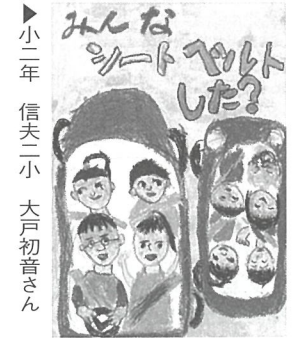 みんな
シートベルト
した?
▶小二年 信夫二小 大戸初音さん